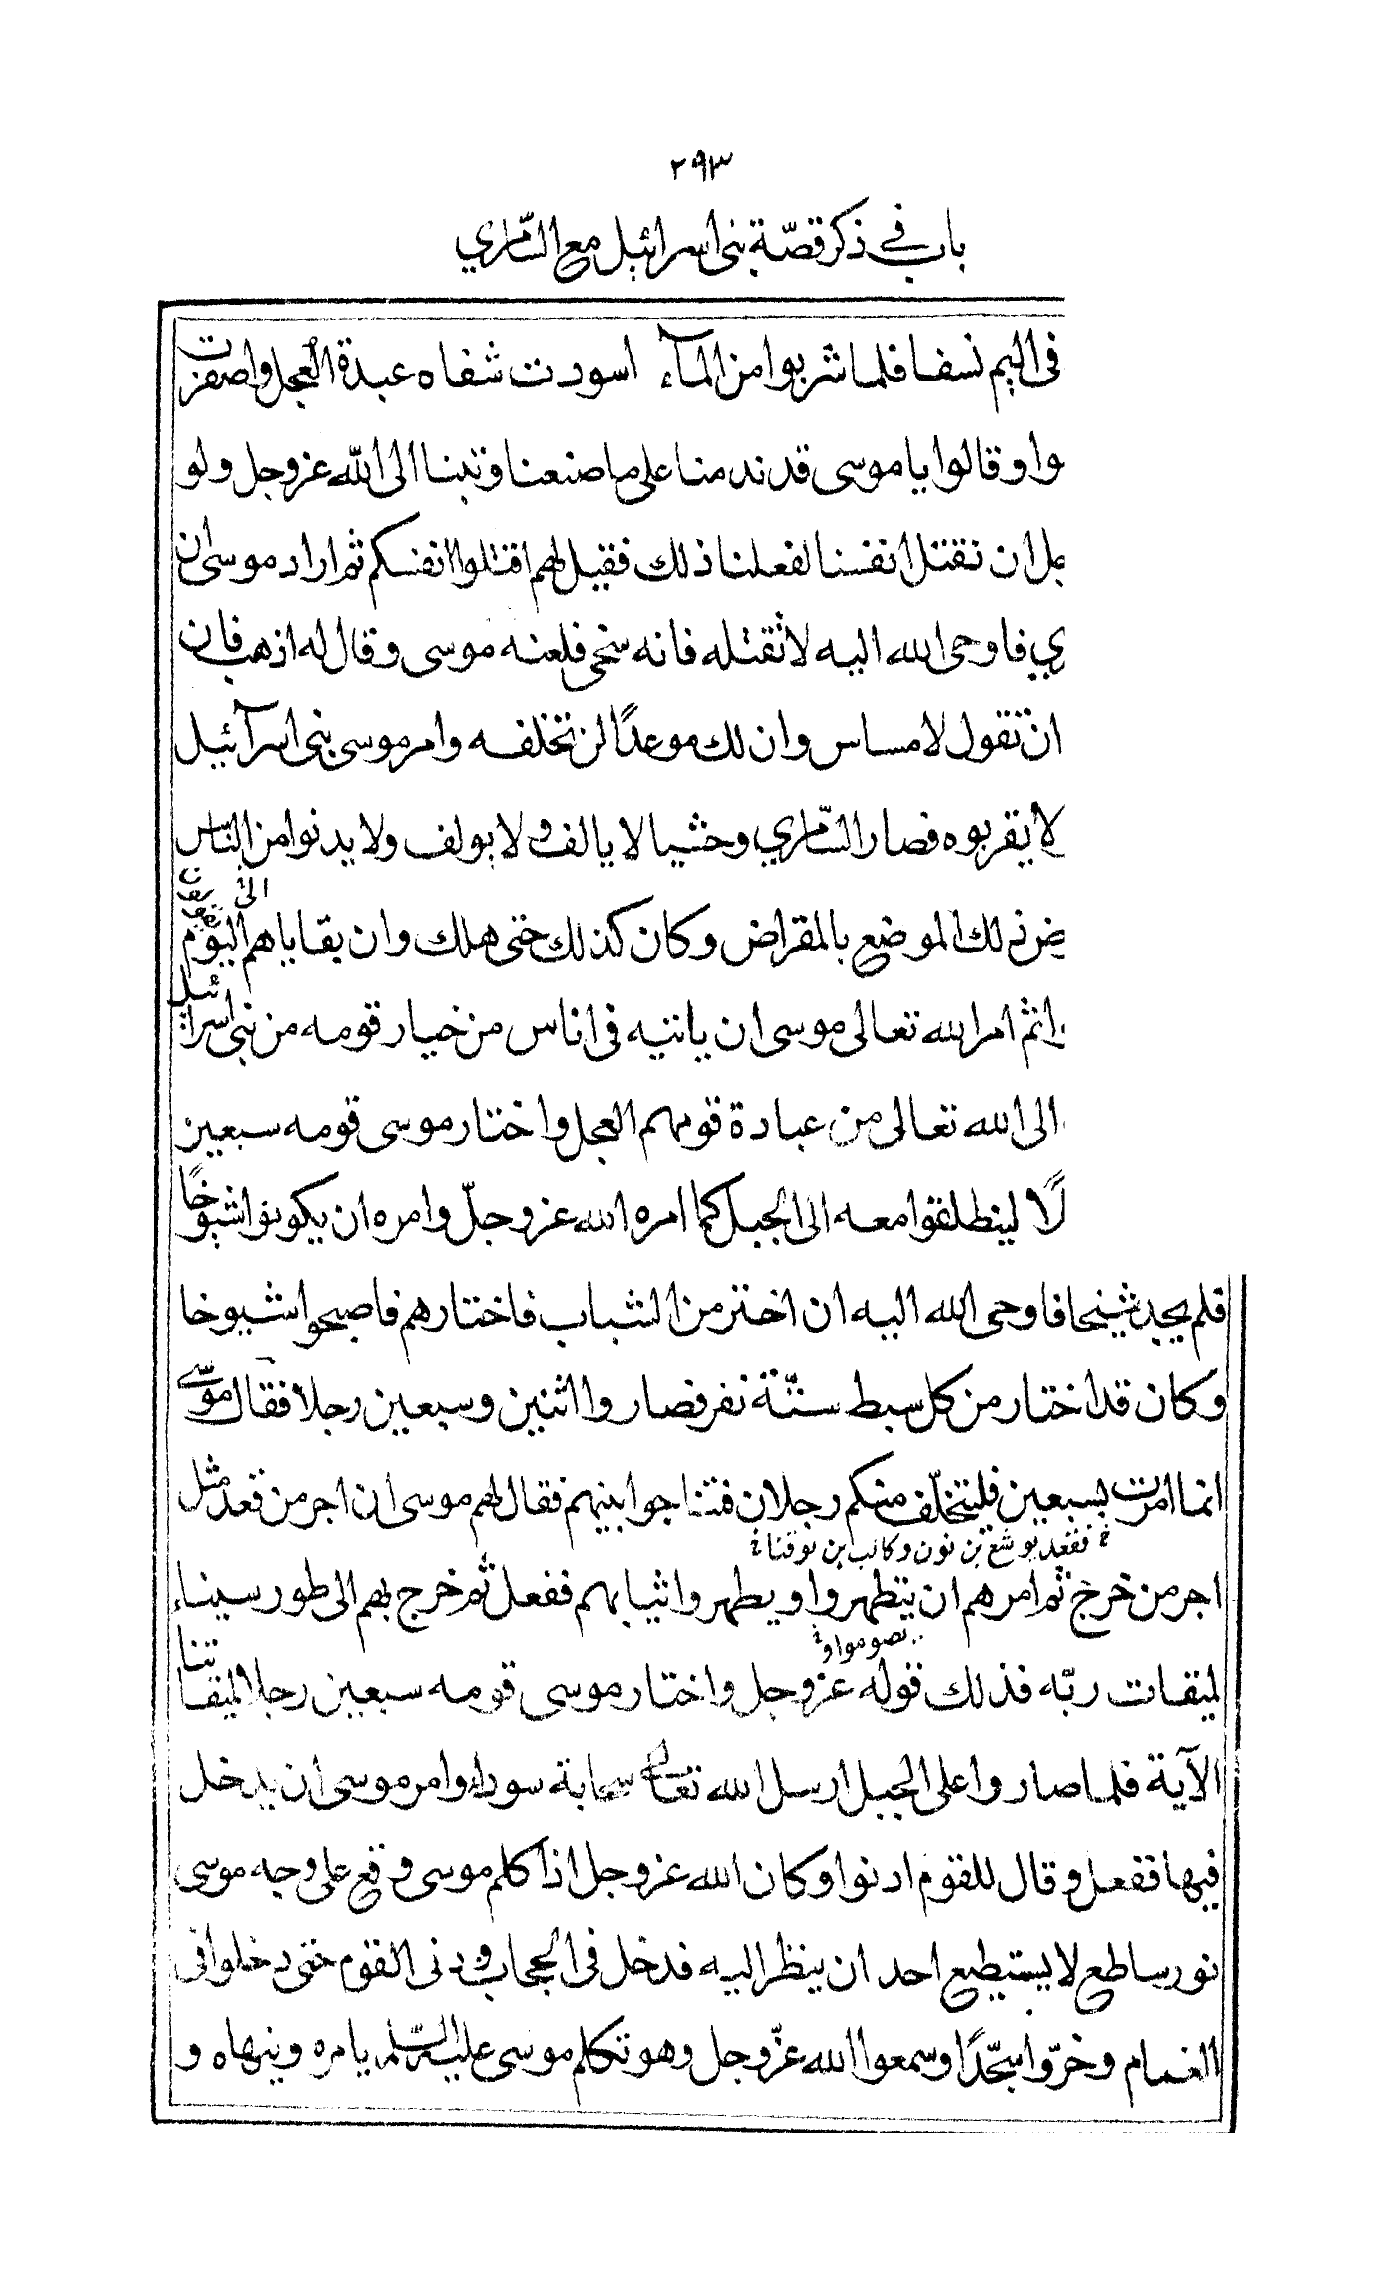 ٢٩٣
باب في ذكر قصّة بنى اسرائيل مع السّامري
فى اليم نسفا فلما شربوا من المآء اسودت شفاه عبدة العجل واصفرت
وا وقالوا يا موسى قد ندمنا على ما صنعنا وتبنا الى اللّه عز وجل ولو
ان نقتل انفسنا لفعلنا ذلك فقيل لهم اقتلوا انفسكم ثم اراد موسى ان
ري فاوحى الله اليه لا تقتله فانه سخى فلعنه موسى وقال له اذهب فان
ان تقول لا مساس وان لك موعدًا لن تخلفه وامر موسى بنى اسرآئيل
لا يقربوه فصار السّامري وحشيا لا يالف ولا يولف ولا يدنوا من الناس
ض ذلك الموضع بالمقراض وكان كذلك حتى هلك وان بقاياهم اليوم
الى يقولون
ثم امر الله تعالى موسى ان ياتيه فى اناس من خيار قومه من بنى اسرائيل
الى الله تعالى من عبادة قومهم العجل واختار موسى قومه سبعين
لًا لينطلقوا معه الى الجبل كما امره الله عز وجلّ وامره ان يكونوا شيوخًا
فلم يجد شيخا فاوحى الله اليه ان اختر من الشباب فاختارهم فاصبحوا شيوخا
وكان قد اختار من كل سبط ستّة نفر فصاروا اثنين وسبعين رجلا فقال موسى
انما امرت بسبعين فليتخلّف منكم رجلان فتناجوا بينهم فقال لهم موسى ان اجر من قعد مثل
فقعد يوشع بن نون وكالب بن يوقنا
اجر من خرج ثم امرهم ان يتطهروا ويطهروا ثيابهم ففعل ثم خرج بهم الى طور سيناء
يصوموا و
لميقات ربّه فذلك قوله عز وجل واختار موسى قومه سبعين رجلا لميقاتنا
الآية فلما صاروا على الجبل ارسل الله تعالى سحابة سوداء وامر موسى ان يدخل
فيها ففعل وقال للقوم ادنوا وكان الله عز وجل اذا كلم موسى وقع على وجه موسى
نور ساطع لا يستطيع احد ان ينظر اليه فدخل فى الحجاب ودنى القوم حتى دخلوا فى
الغمام وخرّوا سجّدًا وسمعوا الله عزّ وجل وهو تكلم موسى عليه السّلم يامره وينهاه و